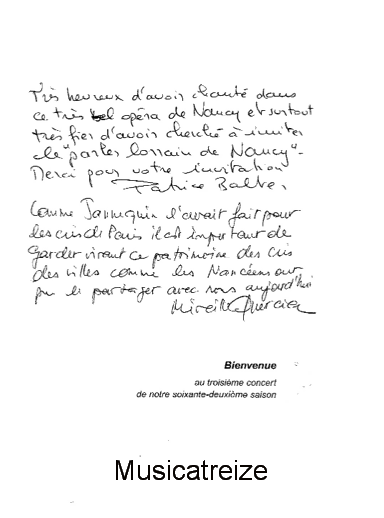 Très heureux d'avoir chanté dans
ce très bel opéra de Nancy et surtout
très fier d'avoir cherché à imiter
le "parler lorrain de Nancy".
Merci pour votre invitation
Patrice Balter
Comme Jannequin l'avait fait pour
les cris de Paris il est important de
garder vivant ce patrimoine des cris
des villes comme les Nancéens ont
pu le partager avec nous aujourd'hui
Mireille Quercia
Bienvenue
au troisième concert
de notre soixante-deuxième saison
Musicatreize